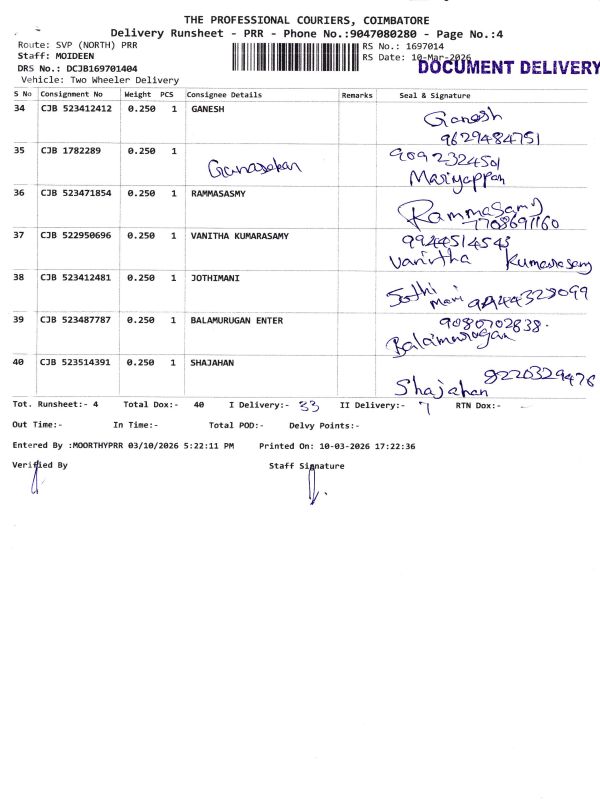 THE PROFESSIONAL COURIERS, COIMBATORE
Delivery Runsheet - PRR - Phone No.:9047080280 - Page No.:4
Route: SVP (NORTH) PRR RS No.: 1697014
Staff: MOIDEEN RS Date: 10-Mar-2026
DOCUMENT DELIVERY
DRS No.: DCJB169701404
Vehicle: Two Wheeler Delivery
S No Consignment No Weight PCS Consignee Details Remarks Seal & Signature
34 CJB 523412412 0.250 1 GANESH Ganesh
9629484751
35 CJB 1782289 0.250 1 9092324501
Gunasekan Mariyappan
36 CJB 523471854 0.250 1 RAMMASASMY Rammasamy
7708691160
37 CJB 522950696 0.250 1 VANITHA KUMARASAMY 9944514543
Vanitha Kumarasamy
38 CJB 523412481 0.250 1 JOTHIMANI Jothi
mani 9244328099
39 CJB 523487787 0.250 1 BALAMURUGAN ENTER 9080702838.
Balamurugan
40 CJB 523514391 0.250 1 SHAJAHAN 8220329476
Shajahan
Tot. Runsheet:- 4 Total Dox:- 40 I Delivery:- 33 II Delivery:- 7 RTN Dox:-
Out Time:- In Time:- Total POD:- Delvy Points:-
Entered By :MOORTHYPRR 03/10/2026 5:22:11 PM Printed On: 10-03-2026 17:22:36
Verified By Staff Signature